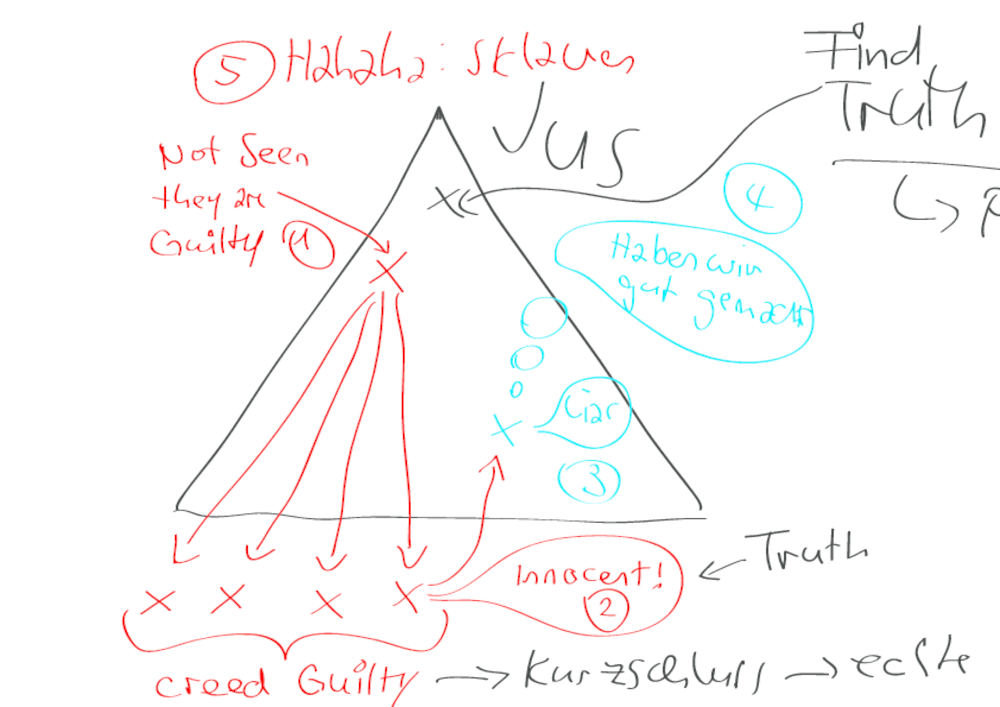 5 Hahaha: Sklaven
Jus
Find
Truth
Not Seen
they are
Guilty 1
4
Haben wir
gut gemacht
Liar
3
Truth
Innocent!
2
creed Guilty → Kurzschluss → echte